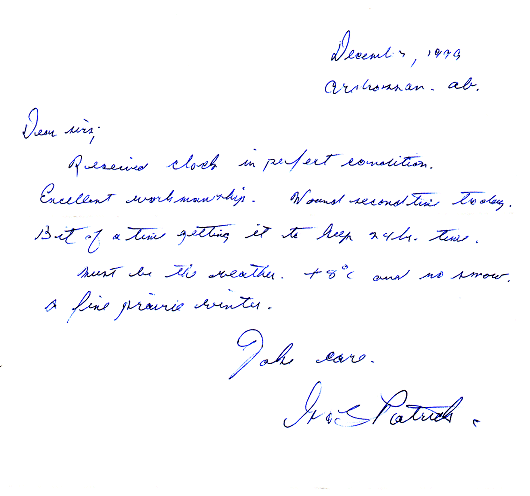 December, 1999
ab.
Dear sirs;
Received clock in perfect condition.
Excellent workmanship. Wound second time today.
Bit of a time getting it to keep 24 hr. time.
must be the weather. +8°c and no snow.
a fine prairie winter.
Take care.
Patrick.